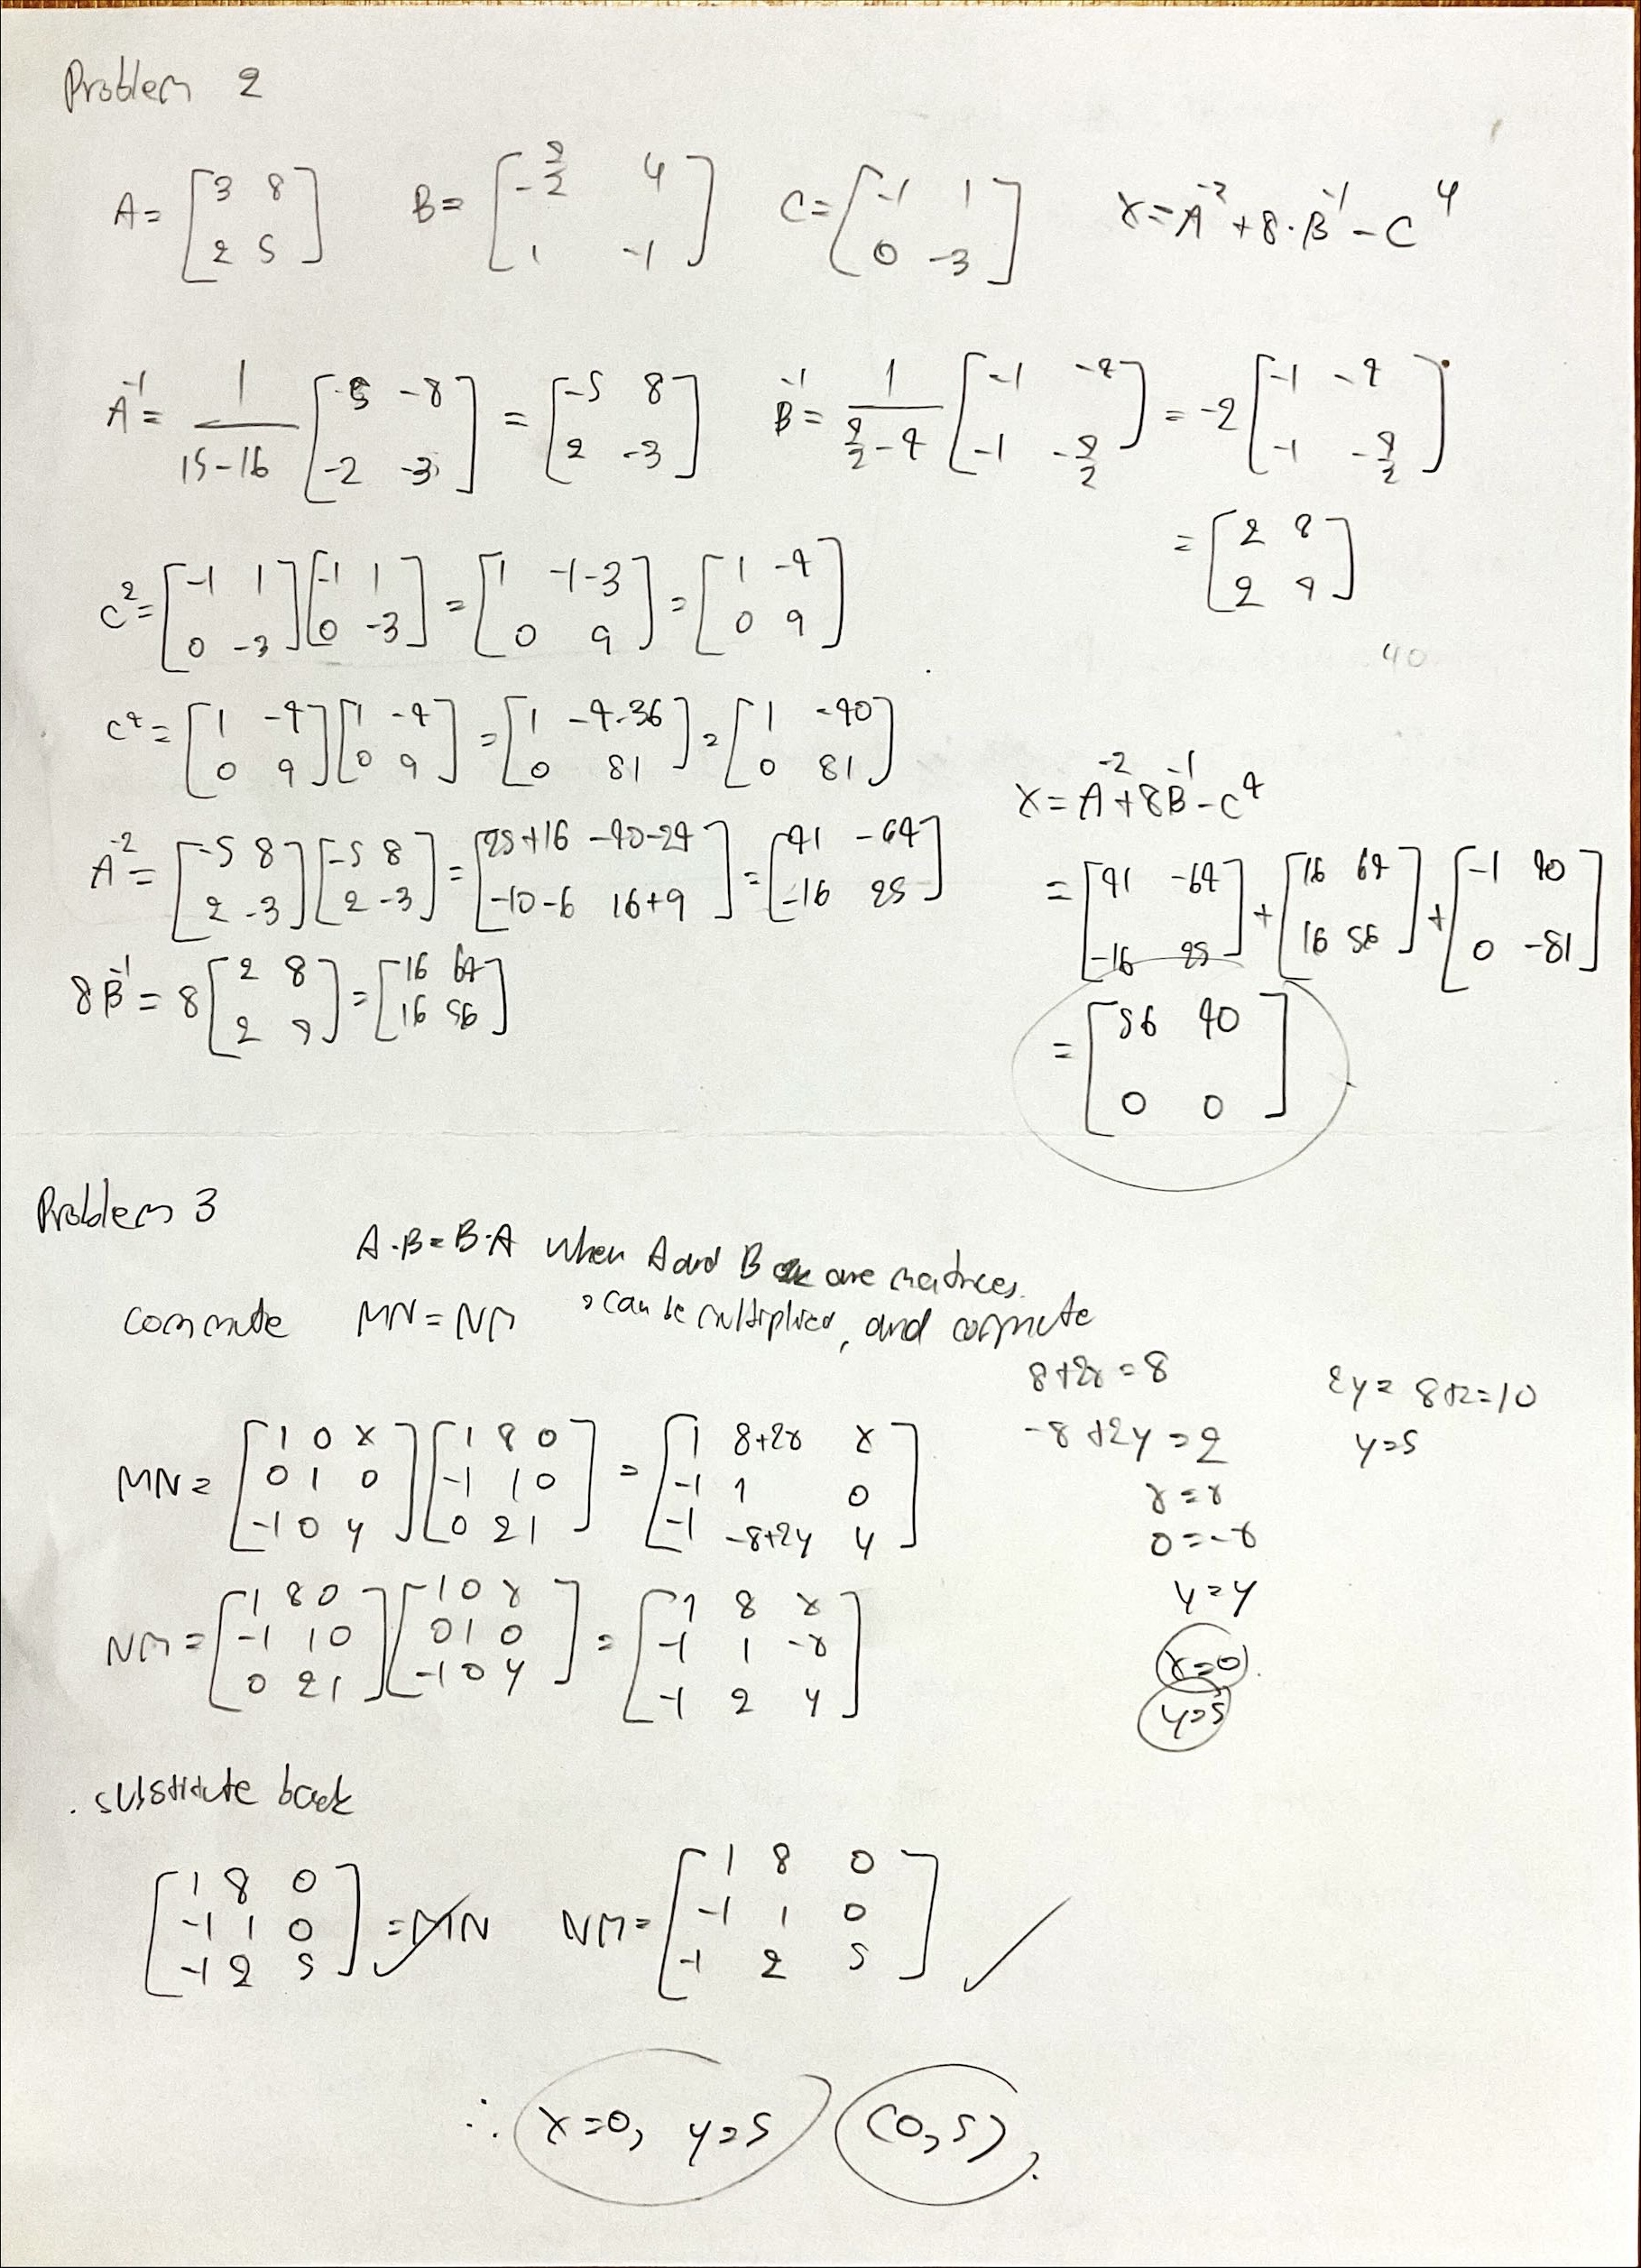 Problem 2
A = [3 8; 2 5] B = [-7/2 4; 1 -1] C = [-1 1; 0 -3] X = A^-2 + 8·B^-1 - C^4
A^-1 = 1/(15-16) [5 -8; -2 -3] = [-5 8; 2 -3] B^-1 = 1/(7/2-4) [-1 -4; -1 -7/2] = -2 [-1 -4; -1 -7/2]
= [2 8; 2 7]
C^2 = [-1 1; 0 -3][-1 1; 0 -3] = [1 -1-3; 0 9] = [1 -4; 0 9]
40
C^4 = [1 -4; 0 9][1 -4; 0 9] = [1 -4-36; 0 81] = [1 -40; 0 81]
X = A^-2 + 8B^-1 - C^4
A^-2 = [-5 8; 2 -3][-5 8; 2 -3] = [25+16 -40-24; -10-6 16+9] = [41 -64; -16 25]
= [41 -64; -16 25] + [16 64; 16 56] + [-1 40; 0 -81]
8B^-1 = 8 [2 8; 2 7] = [16 64; 16 56]
= [56 40; 0 0]
Problem 3
A·B = B·A when A and B are matrices.
commute MN = NM , can be multiplied, and commute
8+2x = 8 2y = 8+2 = 10
-8+2y = 2 y = 5
MN = [1 0 x; 0 1 0; -1 0 y][1 8 0; -1 1 0; 0 2 1] = [1 8+2x x; -1 1 0; -1 -8+2y y]
x = x
0 = -x
y = y
NM = [1 8 0; -1 1 0; 0 2 1][1 0 x; 0 1 0; -1 0 y] = [1 8 x; -1 1 -x; -1 2 y]
x = 0
y = 5
. substitute back
[1 8 0; -1 1 0; -1 2 5] = MN ✓ NM = [1 8 0; -1 1 0; -1 2 5] ✓
∴ x = 0, y = 5 (0, 5).